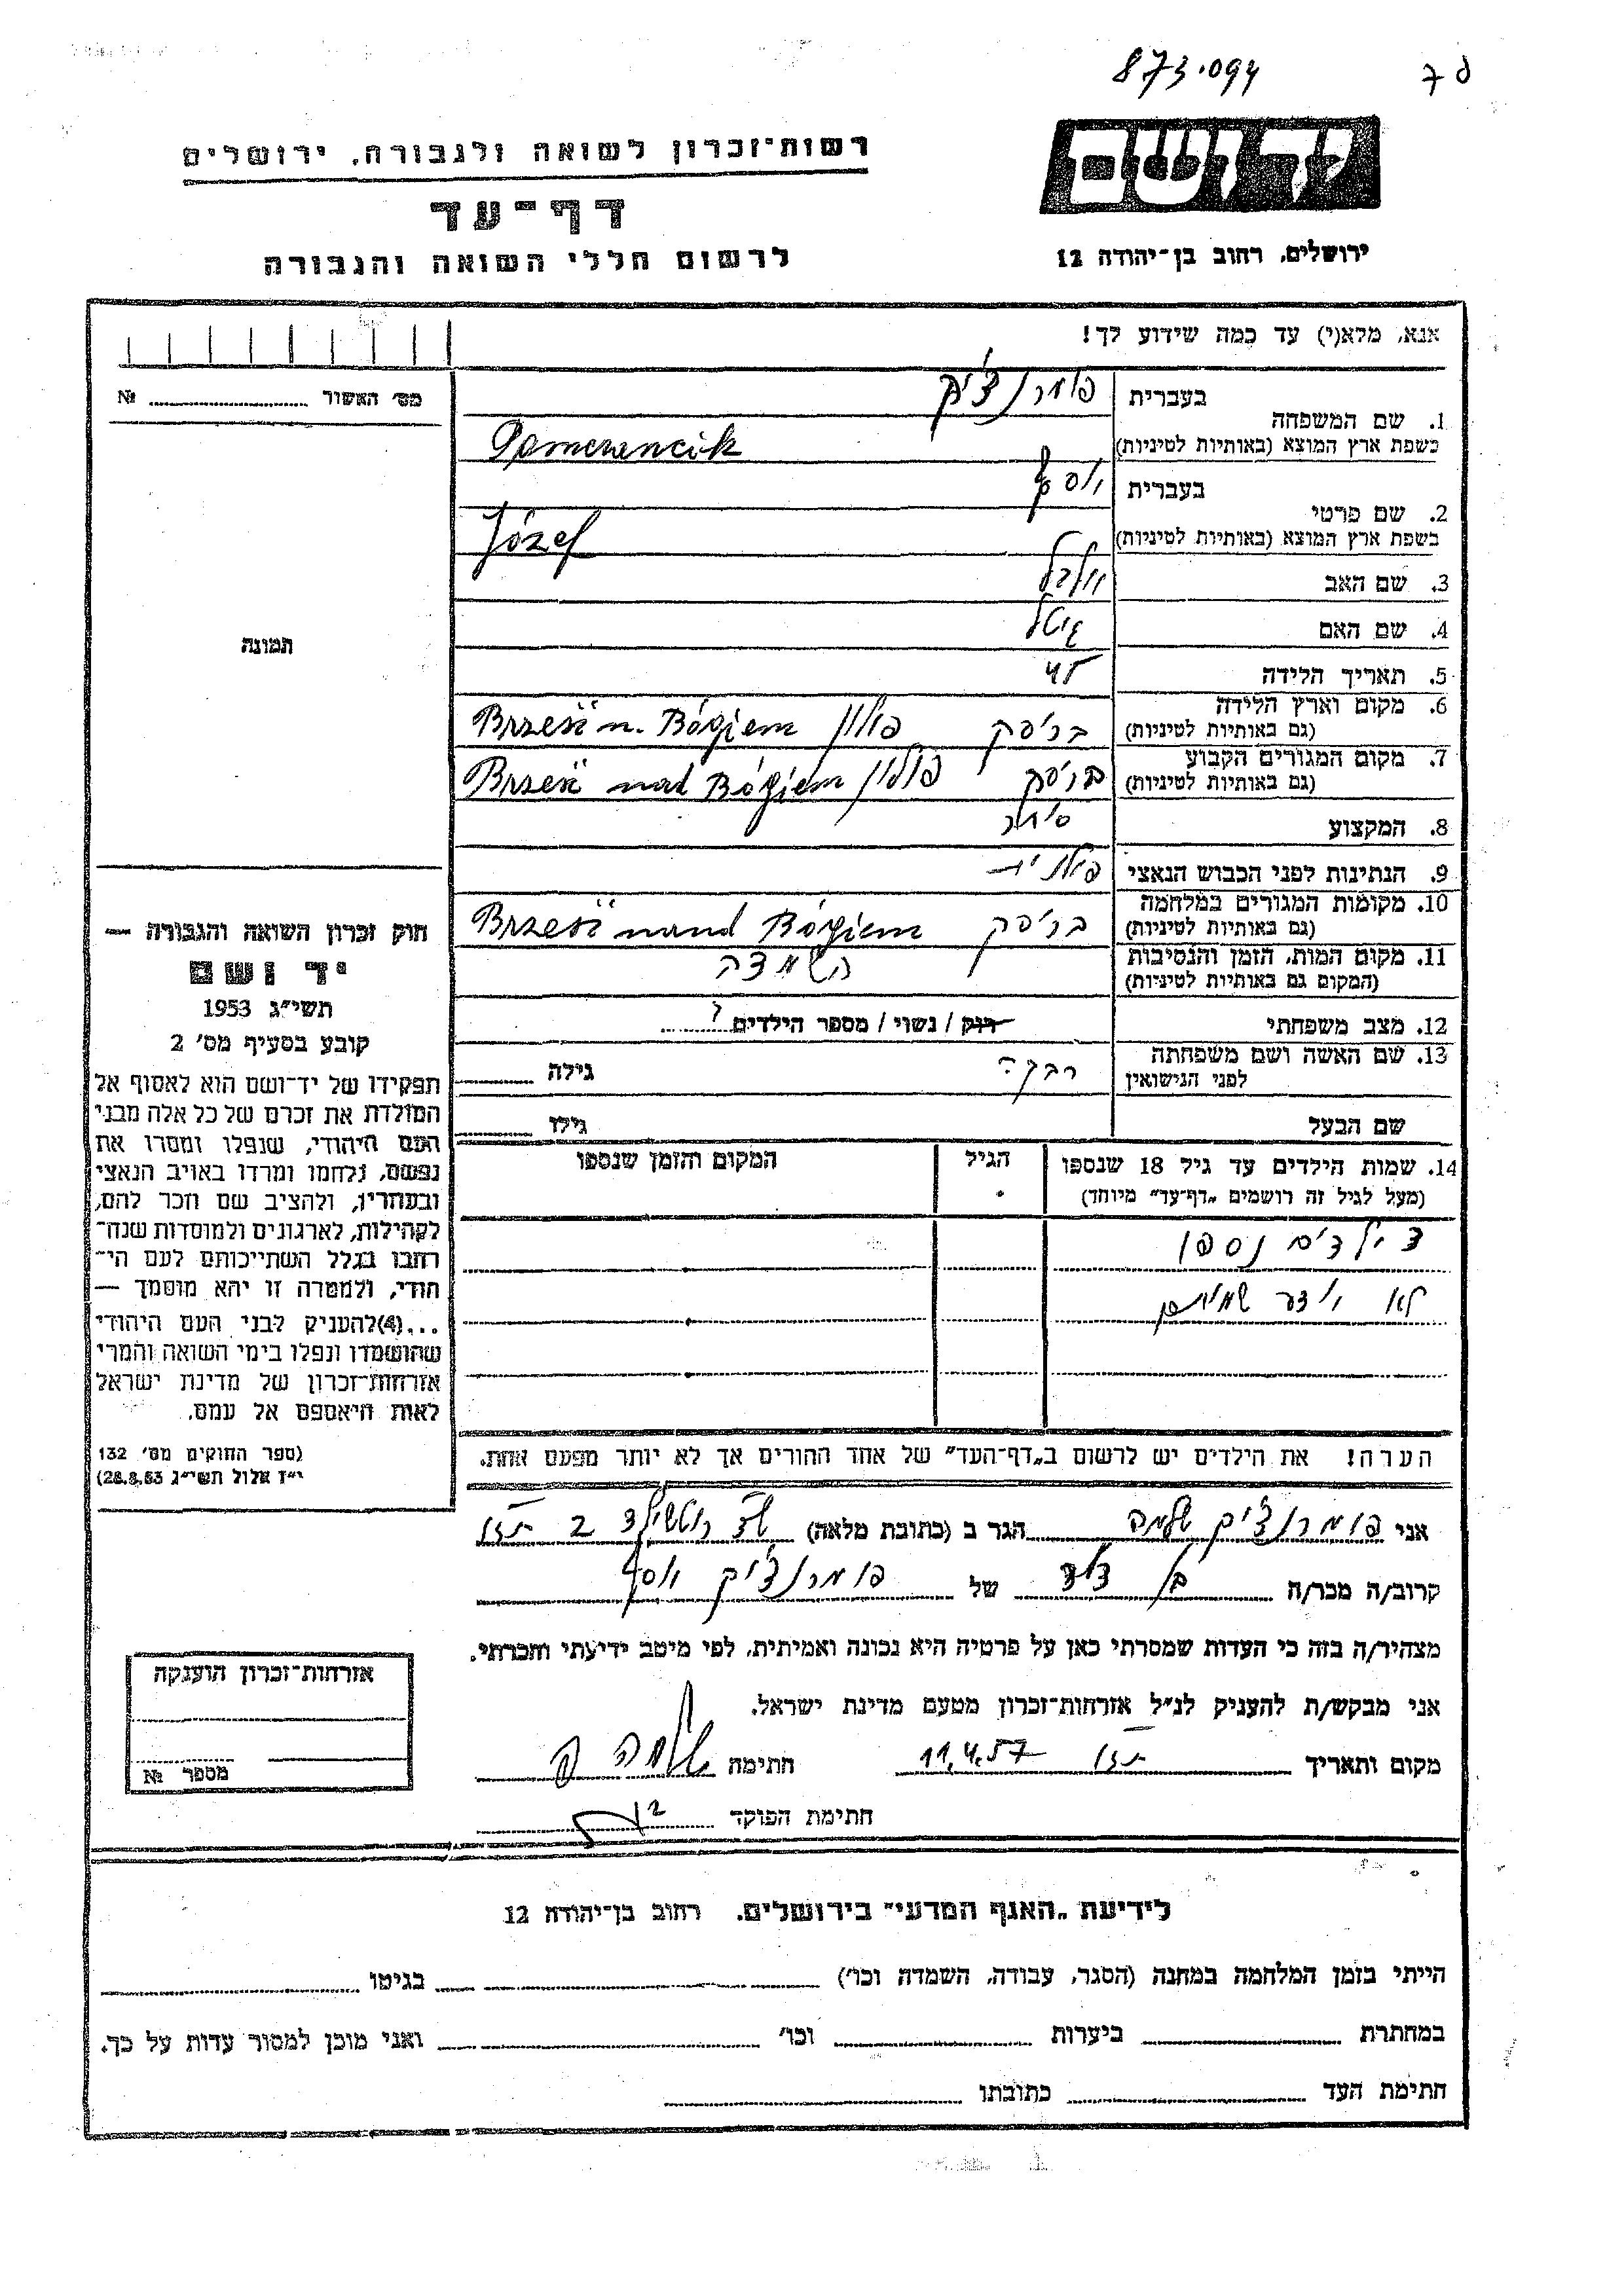 873.094
ד 7
יד ושם
רשות־זכרון לשואה ולגבורה, ירושלים
דף־עד
לרשום חללי השואה והגבורה
ירושלים, רחוב בן־יהודה 12
אנא, מלא(י) עד כמה שידוע לך!
מס׳ האשור № 
1. שם המשפחה
בעברית
פומרנצ׳יק
בשפת ארץ המוצא (באותיות לטיניות)
Pomerencik
2. שם פרטי
בעברית
יוסף
בשפת ארץ המוצא (באותיות לטיניות)
Józef
3. שם האב
וולבל
4. שם האם
4. תאריך הלידה
45
6. מקום וארץ הלידה
(גם באותיות לטיניות)
בריסק פולין Brześć n. Bógiem
7. מקום המגורים הקבוע
(גם באותיות לטיניות)
בריסק פולין Brześć nad Bógiem
8. המקצוע
סוחר
9. הנתינות לפני הכבוש הנאצי
פולנית
10. מקומות המגורים במלחמה
(גם באותיות לטיניות)
בריסק Brześć nand Bógiem
11. מקום המות, הזמן והנסיבות
(המקום גם באותיות לטיניות)
השמדה
12. מצב משפחתי
רווק / נשוי / מספר הילדים ?
13. שם האשה ושם משפחתה
לפני הנישואין
רבקה
גילה
שם הבעל
גילו
14. שמות הילדים עד גיל 18 שנספו
(מעל לגיל זה רושמים „דף־עד״ מיוחד)
הגיל
המקום והזמן שנספו
ילדים נספו
לא יודע שמותם
הערה! את הילדים יש לרשום ב„דף־העד״ של אחד ההורים אך לא יותר מפעם אחת.
תמונה
חוק זכרון השואה והגבורה —
יד ושם
תשי״ג 1953
קובע בסעיף מס׳ 2
תפקידו של יד־ושם הוא לאסוף אל
המולדת את זכרם של כל אלה מבני
העם היהודי, שנפלו ומסרו את
נפשם, נלחמו ומרדו באויב הנאצי
ובעוזריו, ולהציב שם וזכר להם,
לקהילות, לארגונים ולמוסדות שנח־
רבו בגלל השתייכותם לעם הי־
הודי, ולמטרה זו יהא מוסמך —
...(4) להעניק לבני העם היהודי
שהושמדו ונפלו בימי השואה והמרי
אזרחות־זכרון של מדינת ישראל
לאות היאספם אל עמם.
(ספר החוקים מס׳ 132
י״ז אלול תשי״ג 28.8.53)
אני פומרנצ׳יק שלמה הגר ב (כתובת מלאה) שד רוטשילד 2
קרוב/ה מכר/ה בן דוד של פומרנצ׳יק יוסף
מצהיר/ה בזה כי העדות שמסרתי כאן על פרטיה היא נכונה ואמיתית, לפי מיטב ידיעתי והכרתי.
אני מבקש/ת להעניק לנ״ל אזרחות־זכרון מטעם מדינת ישראל.
מקום ותאריך 11.4.57 חתימה שלמה פ
חתימת הפוקד
אזרחות־זכרון הוענקה
מספר №
לידיעת „האגף המדעי״ בירושלים, רחוב בן־יהודה 12
הייתי בזמן המלחמה במחנה (הסגר, עבודה, השמדה וכו׳) בגיטו
במחתרת ביערות וכו׳ ואני מוכן למסור עדות על כך.
חתימת העד כתובתו